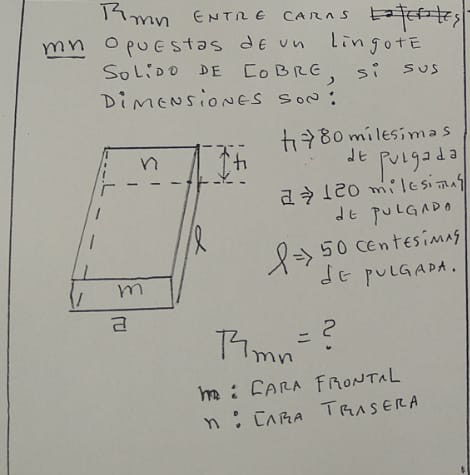 Rmn ENTRE CARAS
mn OPUESTAS DE UN LINGOTE
SOLIDO DE COBRE, SI SUS
DIMENSIONES SON:
h⇒80 MILESIMAS
DE PULGADA
a⇒120 MILESIMAS
DE PULGADA
l⇒50 CENTESIMAS
DE PULGADA.
n
h
l
m
a
Rmn=?
m: CARA FRONTAL
n: CARA TRASERA